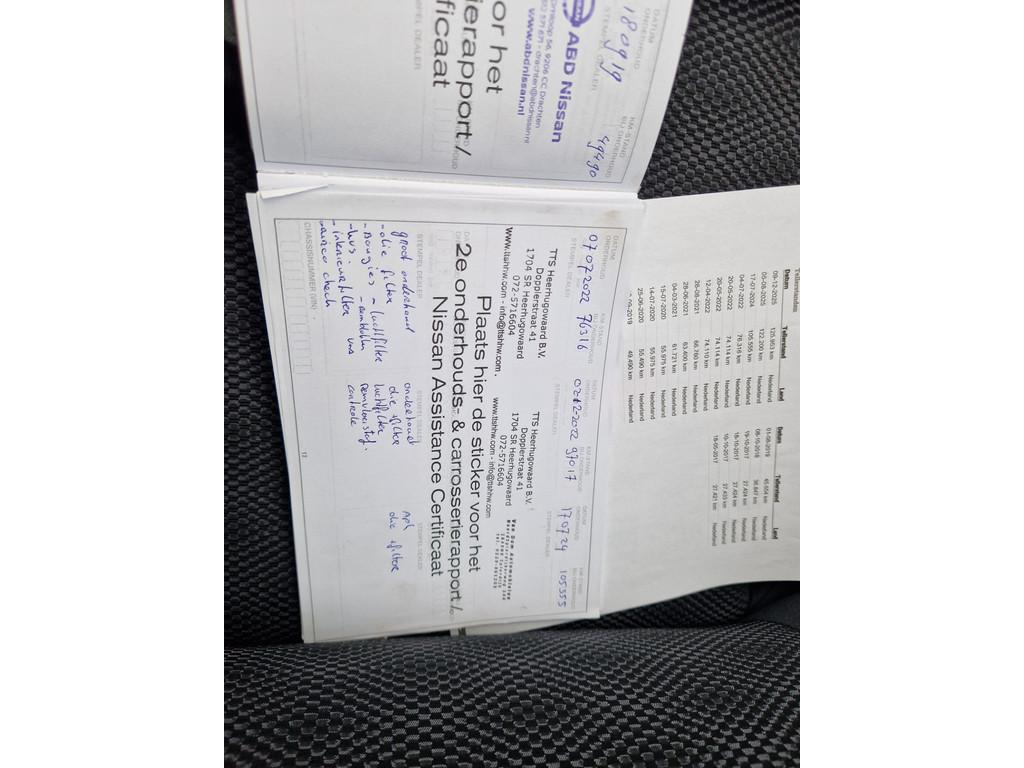 DATUM
ONDERHOUD
KM-STAND
BIJ ONDERHOUD
180919
49490
STEMPEL DEALER
ABD Nissan
9206 CC Drachten
www.abdnissan.nl
oor het
ierapport /
ificaat
STEMPEL DEALER
DATUM
ONDERHOUD
KM-STAND
BIJ ONDERHOUD
07072022 76316
STEMPEL DEALER
TTS Heerhugowaard B.V.
Dopplerstraat 41
1704 SR Heerhugowaard
072-5716604
www.ttshhw.com - info@ttshhw.com
DATUM
ONDERHOUD
KM-STAND
BIJ ONDERHOUD
97017
STEMPEL DEALER
TTS Heerhugowaard B.V.
Dopplerstraat 41
1704 SR Heerhugowaard
072-5716604
www.ttshhw.com - info@ttshhw.com
DATUM
ONDERHOUD
KM-STAND
BIJ ONDERHOUD
170724
105355
STEMPEL DEALER
Van Dam Automobielen
Plaats hier de sticker voor het
2e onderhouds- & carrosserierapport /
Nissan Assistance Certificaat
STEMPEL DEALER
groot onderhoud
- olie filter
- Bougies - luchtfilter
- interieurfilter
airco check
STEMPEL DEALER
onderhoud
olie + filter
luchtfilter
remvloeistof
controle
STEMPEL DEALER
Apk
olie + filter
CHASSISNUMMER (VIN)
17
Tellerstanden
Datum Tellerstand Land
09-12-2025 125.953 km Nederland
05-08-2025 122.200 km Nederland
17-07-2024 105.555 km Nederland
04-07-2022 76.316 km Nederland
20-05-2022 74.114 km Nederland
20-05-2022 74.114 km Nederland
12-04-2022 74.110 km Nederland
26-08-2021 66.760 km Nederland
28-06-2021 63.400 km Nederland
04-03-2021 61.721 km Nederland
15-07-2020 55.975 km Nederland
14-07-2020 55.975 km Nederland
25-06-2020 55.490 km Nederland
-09-2019 49.490 km Nederland
Datum Tellerstand Land
01-08-2019 45.654 km Nederland
08-10-2018 36.647 km Nederland
19-10-2017 27.424 km Nederland
18-10-2017 27.424 km Nederland
10-10-2017 27.423 km Nederland
18-05-2017 27.421 km Nederland